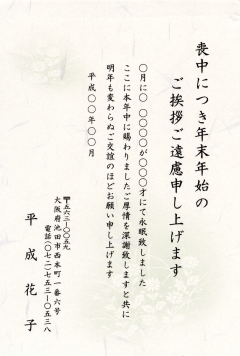 喪中につき年末年始の
ご挨拶ご遠慮申し上げます
〇月に〇 〇〇〇〇が〇〇〇才にて永眠致しました
ここに本年中に賜わりましたご厚情を深謝致しますと共に
明年も変わらぬご交誼のほどお願い申し上げます
平成〇〇年〇〇月
〒五六三-〇〇五九
大阪府池田市西本町一番六号
電話(〇七二)七五三-〇五三八
平成花子